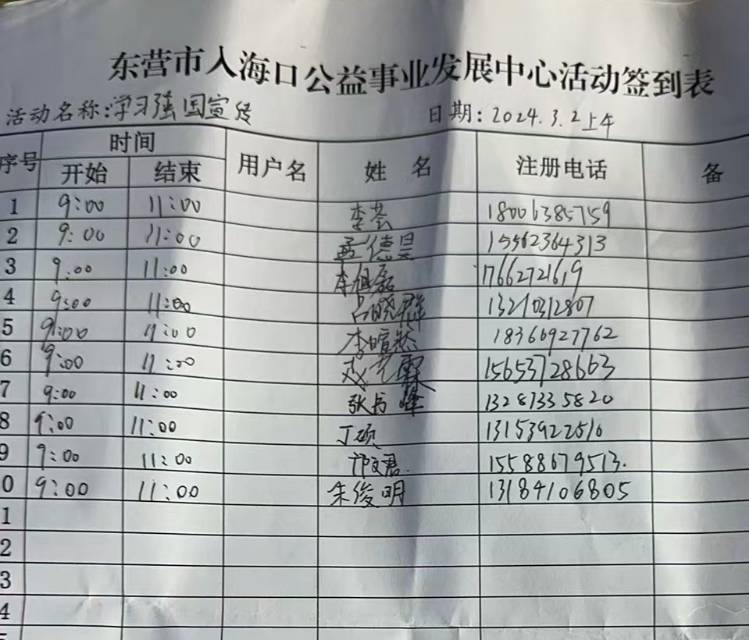 东营市入海口公益事业发展中心活动签到表
活动名称:学习强国宣传 日期:2024.3.2上午
序号 时间 用户名 姓 名 注册电话 备
开始 结束
1 9:00 11:00 李芸 18006385759
2 9:00 11:00 孟德昊 15562364313
3 9:00 11:00 17662721619
4 9:00 11:00 吕晓群 13210312807
5 9:00 11:00 18366927762
6 9:00 11:00 15653728663
7 9:00 11:00 13281335820
8 9:00 11:00 丁硕 13153922516
9 9:00 11:00 祁文君. 15588679513.
0 9:00 11:00 朱俊明 13184106805
1
2
3
4